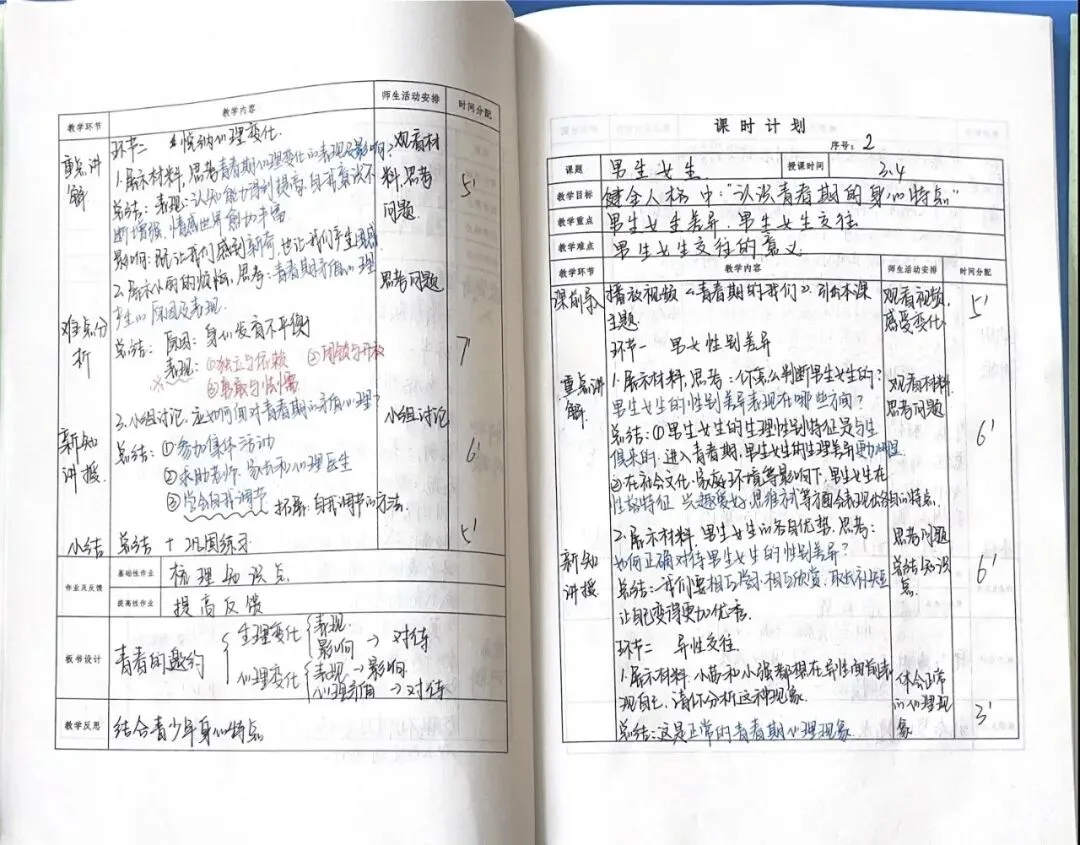 教学环节 教学内容 师生活动安排 时间分配
重点讲解
环节二 悦纳心理变化
1.展示材料,思考青春期心理变化的表现及影响?
总结:表现:认知能力得到提高,自我意识不
断增强,情感世界愈加丰富
影响:既让我们感到新奇,也让我们产生困惑
观看材
料,思考
问题
5'
2.展示 的烦恼,思考:青春期矛盾心理
产生的原因及表现
思考问题
难点分析
总结:原因:身心发育不平衡
表现:①独立与依赖 ②闭锁与开放
③勇敢与怯懦
7'
新知讲授
3.小组讨论,应如何面对青春期的矛盾心理?
总结:①参加集体活动
②求助老师、家长和心理医生
③学会自我调节 拓展:自我调节的方法
小组讨论
6'
小结 总结+巩固练习 5'
作业及反馈 基础性作业 梳理知识点
提高性作业 提高反馈
板书设计 青春的邀约
生理变化 表现
影响→对待
心理变化 表现→影响
心理矛盾→对待
教学反思 结合青少年身心特点
课时计划
序号:2
课题 男生女生 授课时间 3.4
教学目标 健全人格中:“认识青春期的身心特点”
教学重点 男生女生差异、男生女生交往
教学难点 男生女生交往的意义
教学环节 教学内容 师生活动安排 时间分配
课前导入 播放视频《青春期的我们》引出本课
主题
观看视频,
感受变化
5'
环节一 男女性别差异
重点讲解
1.展示材料,思考:你怎么判断男生女生的?
男生女生的性别差异表现在哪些方面?
观看材料
思考问题
总结:①男生女生的生理性别特征是与生
俱来的,进入青春期,男生女生的生理差异更加明显
②在社会文化、家庭环境等影响下,男生女生在
性格特征、兴趣爱好、思维方式等方面会表现出各自的特点.
6'
新知讲授
2.展示材料,男生女生的各自优势,思考:
如何正确对待男生女生的性别差异?
总结:我们要相互学习,相互欣赏,取长补短
让自己变得更加优秀.
思考问题
总结知识
点
6'
环节二 异性交往
1.展示材料,小茜和小强都想在异性面前表
现自己,请你分析这种现象.
总结:这是正常的青春期心理现象
体会正常
的心理现
象
3'